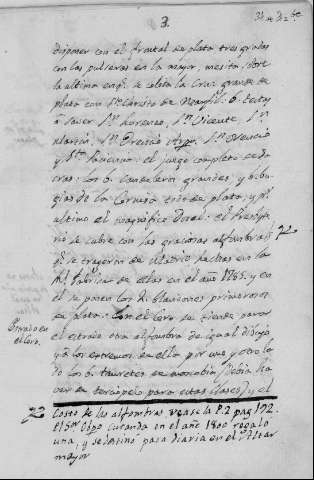 3.
disponer con el frontal de plata tres gradas
con las pulseras en la mayor, mesita, sobre
la ultima en q.e se coloca la Cruz grande de
plata con S.to Christo de Marfil: 6. Testas
a saver S.n Lorenzo, S.n Vicente, S.n
Martin, S.n Orencio Obpo, S.n Orencio
y S.ta Paciencia: el juego completo de
cras: los 6. Candeleros grandes, y 6. bu-
gias de la todo de plata, y p.r
ultimo el magnifico Dosel: el Presbyte-
rio se cubre con las graciosas alfombras 72
q.e se trageron de Madrid hechas en la
R.l fabrica de ellas en el año 1785. y en
el se ponen los 4. blandones primorosos
de plata. Con el Coro se tiende para
el estrado otra alfombra de igual dibujo
y a los estremos de ella por uno y otro la-
do los 6. tauretes de (Debia ha-
cer de terciopelo para estas clases) y el
en
el Coro.
72 Coste de las alfombras vease la P. 2 pag 192.
El S.or Obpo Cutanda en el año 1800 regaló
una, y se destinó para diaria en el Altar
mayor